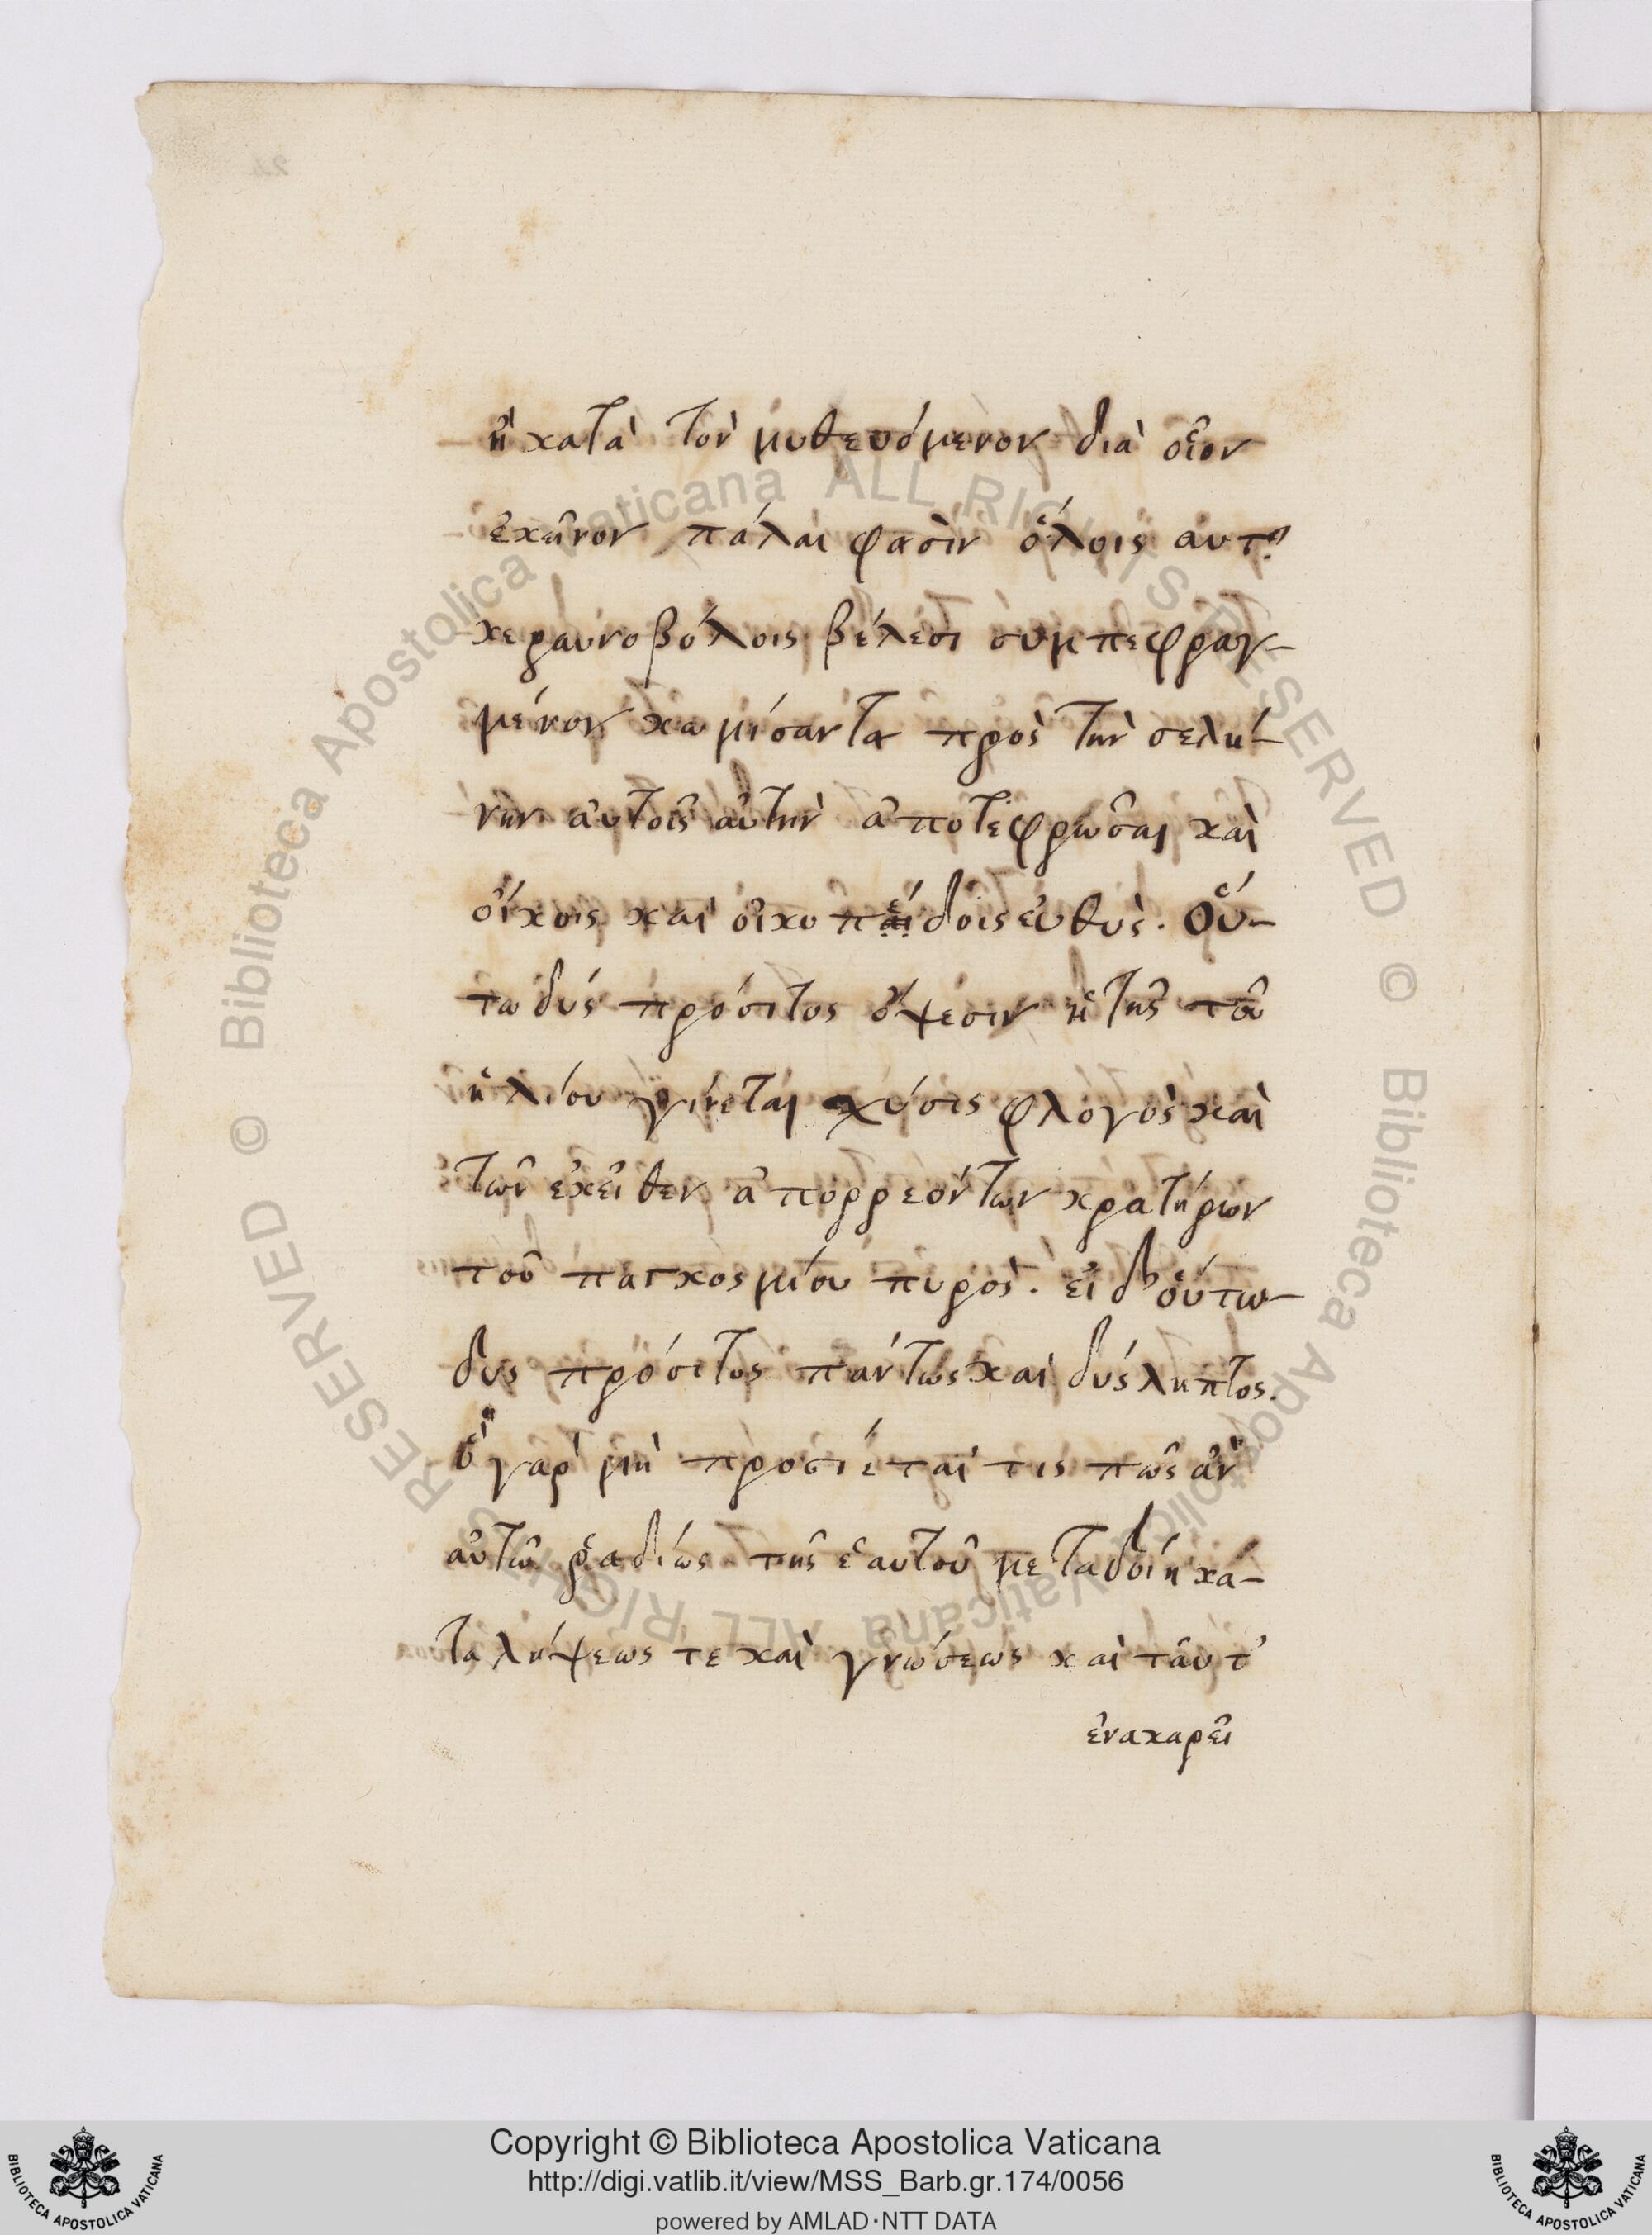 ἢ κατὰ τὸν μυθευόμενον δία οἷον
ἐκεῖνον πάλαι φασὶν ὅλοις αυτ
κεραυνοβόλοις βέλεσι συμπεφραγ-
μένον κωμίσαντα πρὸς τὴν σελή-
νην αὐτοῖς αὐτὴν ἀποτεφρῶσαι καὶ
οἴκοις καὶ οἰκοπέδοις εὐθὺς. Οὕ-
τω δυς πρόσιτος ὄψεσιν ἡ τῆς τοῦ
ἡλίου γίνεται χύσις φλογὸς καὶ
τῶν ἐκεῖθεν ἀπορρεόντων κρατήρων
τοῦ παγκοσμίου πυρὸς. εἰ δ' οὕτω-
δυς πρόσιτος πάντως καὶ δύςληπτος.
ὃ γὰρ μὴ προσιέται τις πῶς ἂν
αὐτῶ ῥαδίως τῆς ἑαυτοῦ μεταδοίη κα-
ταλήψεως τε καὶ γνώσεως καὶ ταῦτ'
ἐνακαρεῖ
Copyright © Biblioteca Apostolica Vaticana
http://digi.vatlib.it/view/MSS_Barb.gr.174/0056
powered by AMLAD·NTT DATA
BIBLIOTECA APOSTOLICA VATICANA
BIBLIOTECA APOSTOLICA VATICANA
© Biblioteca Apostolica Vaticana ALL RIGHTS RESERVED
© Biblioteca Apostolica Vaticana ALL RIGHTS RESERVED